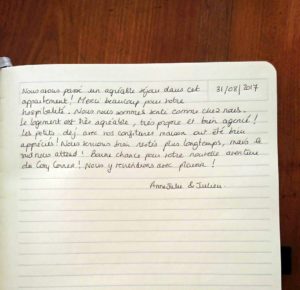 Nous avons passé un agréable séjour dans cet
31/08/2017
appartement ! Merci beaucoup pour votre
hospitalité. Nous nous sommes sentis comme chez nous.
Le logement est très agréable, très propre et bien agencé !
Les petits dej. avec vos confitures maison ont été bien
appréciés ! Nous serions bien restés plus longtemps, mais le
sud nous attend ! Bonne chance pour votre nouvelle aventure
du Cosy Corner ! Nous y reviendrons avec plaisir !
Anne Julie & Julien.